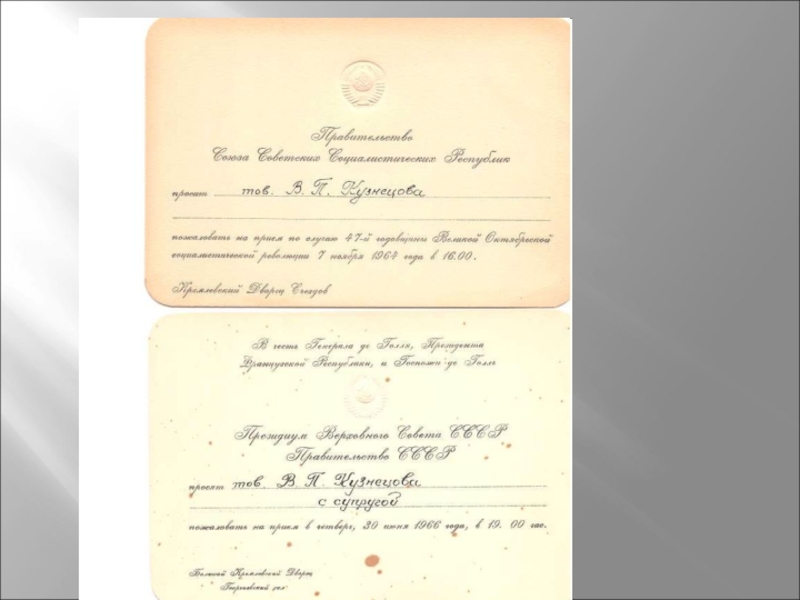 Правительство
Союза Советских Социалистических Республик
просит тов. В. П. Кузнецова
пожаловать на прием по случаю 47-й годовщины Великой Октябрьской
социалистической революции 7 ноября 1964 года в 16.00.
Кремлевский Дворец Съездов
В честь Генерала де Голля, Президента
Французской Республики, и Госпожи де Голль
Президиум Верховного Совета СССР
Правительство СССР
просят тов. В. П. Кузнецова
с супругой
пожаловать на прием в четверг, 30 июня 1966 года, в 19. 00 час.
Большой Кремлевский Дворец
Георгиевский зал